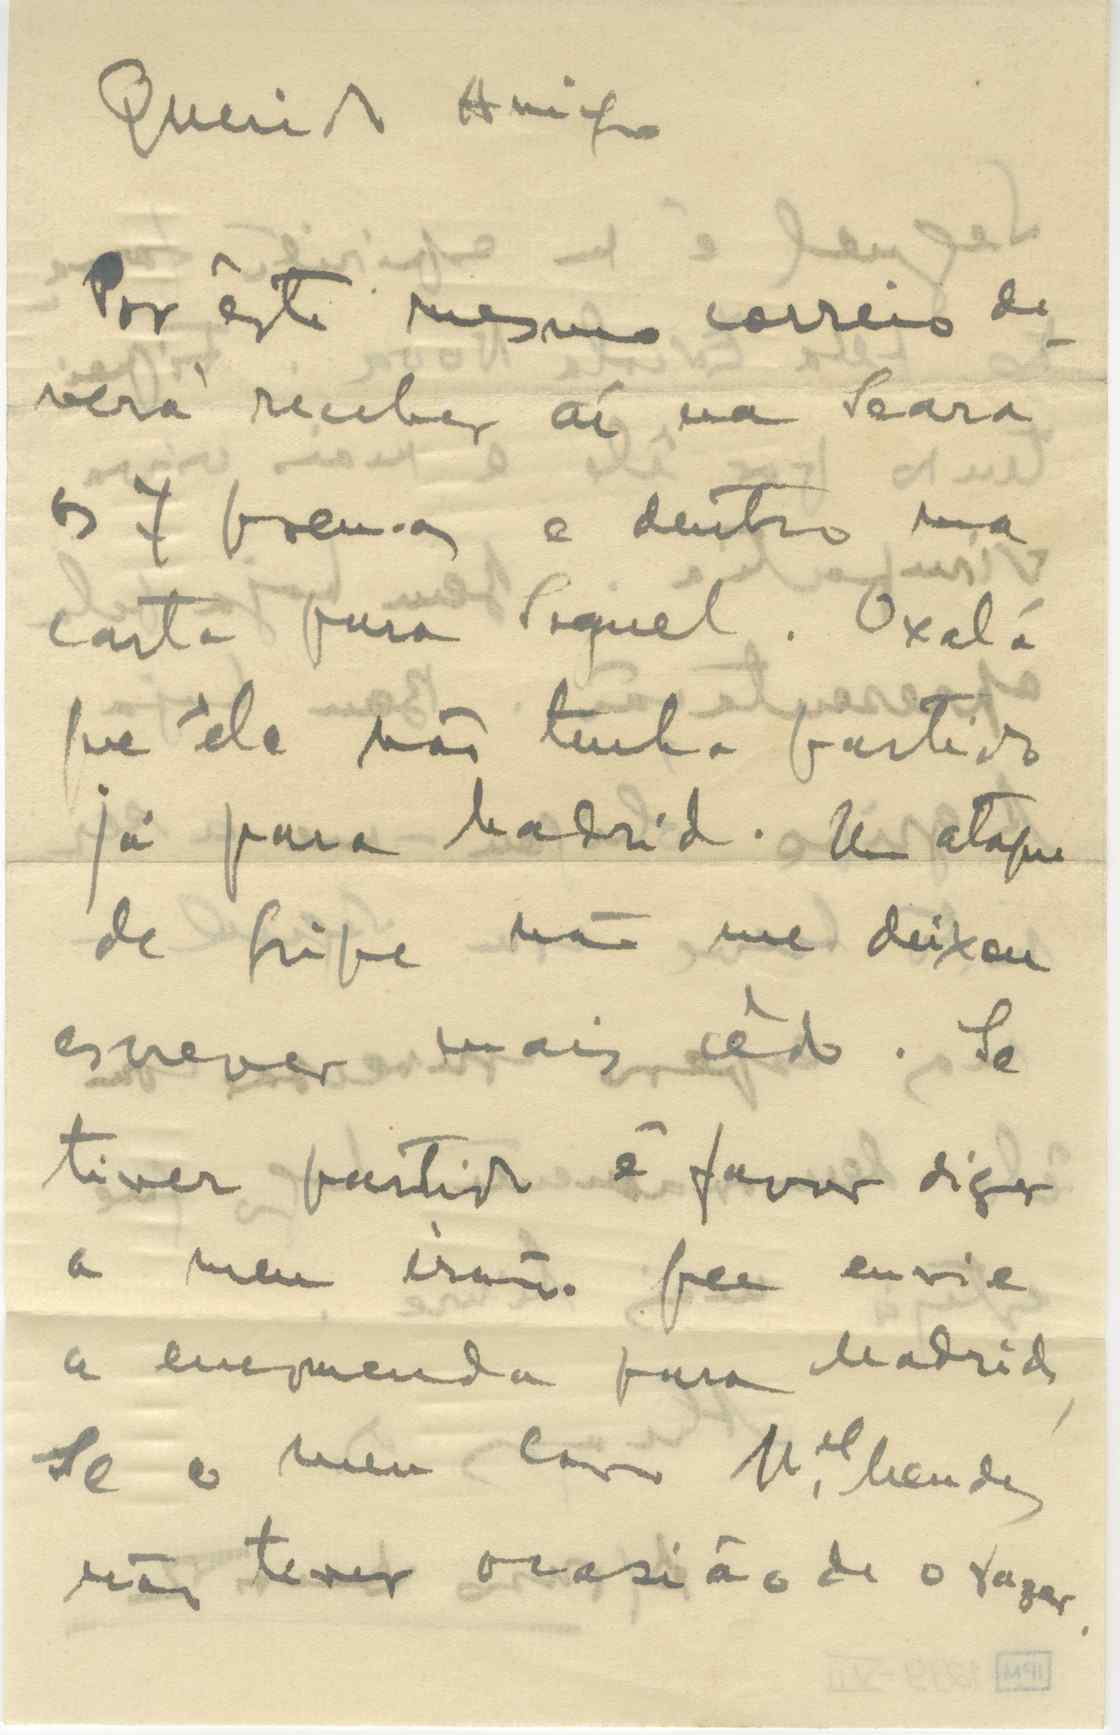 Querido Amigo
Por êste mesmo correio de-
verá receber aí na Seara
os 7 poemas e dentro uma
carta para Seguel. Oxalá
que êle não tenha partido
já para Madrid. Um ataque
de gripe não me deixou
escrever mais cêdo. Se
tiver partido é favor dizer
a meu irmão que envie
a encomenda para Madrid,
Se o meu caro M.el Mendes
não tever ocasião de o fazer.